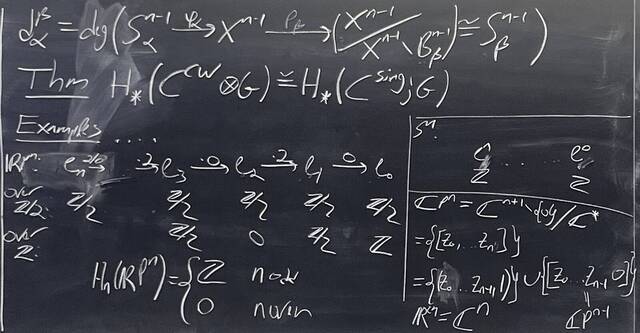 d_α^β = deg(S_α^{n-1} →^{φ_α} X^{n-1} →^{P_β} (X^{n-1}/X^{n-1}\B_β^n) ≅ S_β^{n-1})
Thm H_*(C^{CW}⊗G) ≅ H_*(C^{sing};G)
Examples ....
RP^n: e_n →^{2/0} →^{·2} e_3 →^{·0} e_2 →^{·2} e_1 →^{0} e_0
over Z/2: Z/2 Z/2 Z/2 Z/2 Z/2
over Z: Z/2 0 Z/2 Z
H_n(RP^n) = { Z n odd
0 n even
S^n:
e^n .... e^0
Z Z
CP^n = C^{n+1}\{0}/C^*
= {[z_0, ... z_n]}
= {(z_0 ... z_{n-1}, 1)} ∪ {[z_0 ... z_{n-1} 0]}
R^{2n} = C^n
CP^{n-1}